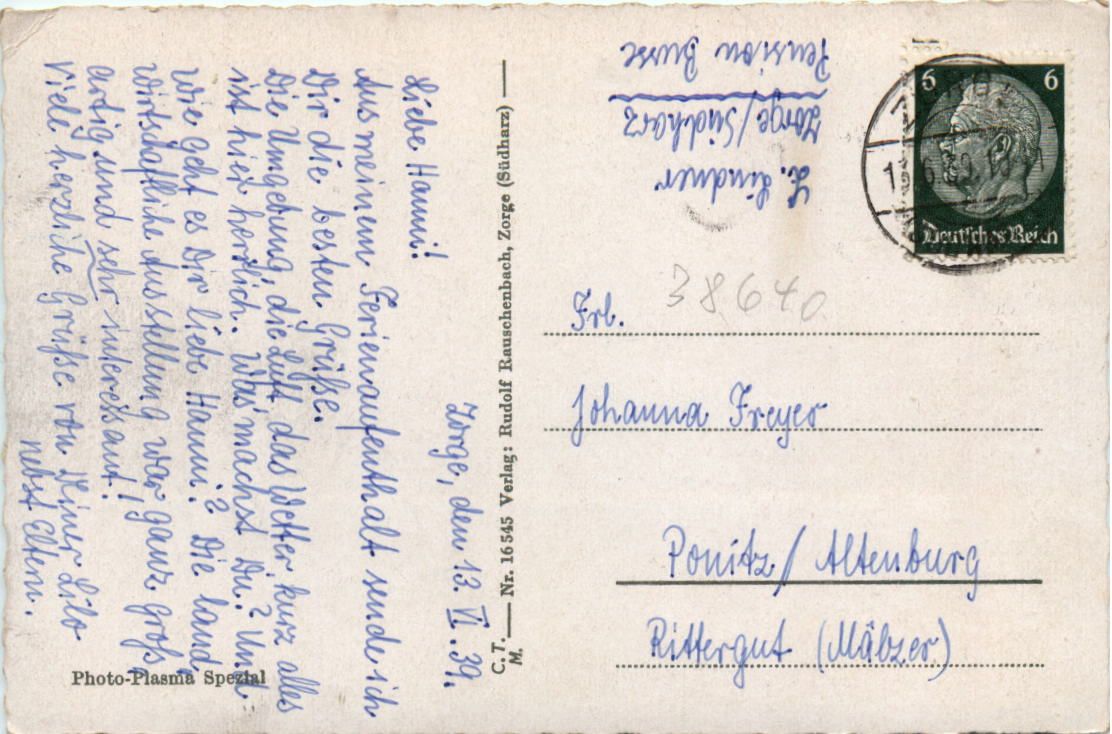 Zorge, den 13. VI. 39.
Liebe Hanni!
Aus meinem Ferienaufenthalt sende ich
Dir die besten Grüße.
Die Umgebung, die Luft, das Wetter, kurz alles
ist hier herrlich. Was machst Du? Und
wie geht es Dir liebe Hanni? Die land-
wirtschaftliche Ausstellung war ganz groß-
artig und sehr interessant!
Viele herzliche Grüße von Deiner Lilo
nebst Eltern.
Photo-Plasma Spezial
C. T.
M.
Nr. 16545 Verlag: Rudolf Rauschenbach, Zorge (Südharz)
L. Lindner
Zorge/Südharz
Pension Busse
6 6
Deutsches Reich
38640
Frl.
Johanna Freyer
Ponitz/Altenburg
Rittergut (Mälzer)